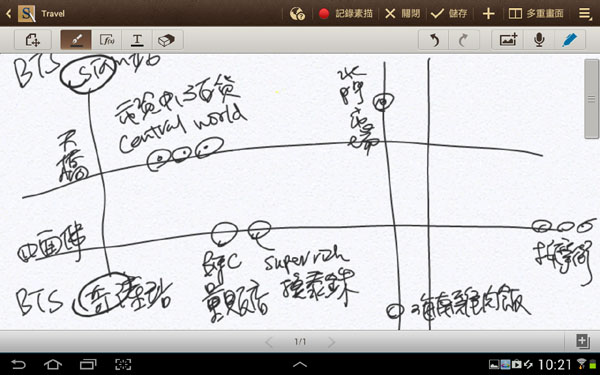 Travel
記錄素描
關閉
儲存
多重畫面
BTS Siam站
百貨
central world
天橋
水門市場
四面佛
BTS 奇隆站
BIG C
量販店
super rich
換泰銖
按摩街
海南雞肉飯
1/1
10:21